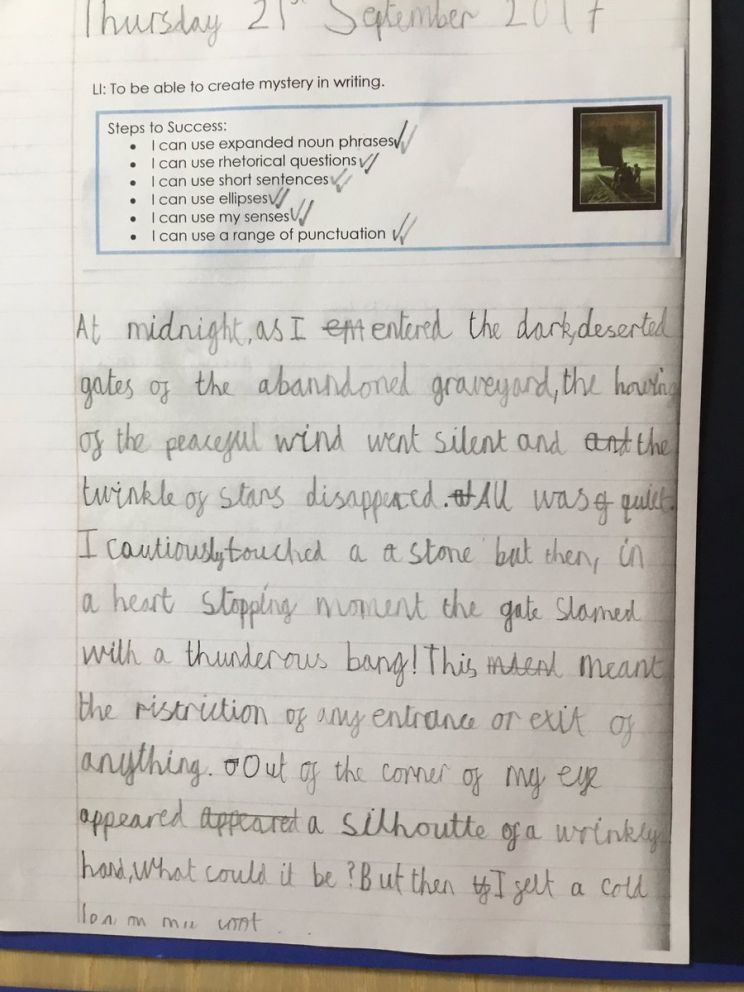 Thursday 21st September 2017
LI: To be able to create mystery in writing.
Steps to Success:
• I can use expanded noun phrases
• I can use rhetorical questions
• I can use short sentences
• I can use ellipses
• I can use my senses
• I can use a range of punctuation
At midnight, as I entered the dark, deserted
gates of the abanndoned graveyard, the howling
of the peaceful wind went silent and the
twinkle of stars disappeared. All was quiet.
I cautiously touched a stone but then, in
a heart stopping moment the gate slamed
with a thunderous bang! This meant
the ristriction of any entrance or exit of
anything. Out of the corner of my eye
appeared a silhoutte of a wrinkly
hand, What could it be? But then I felt a cold
on